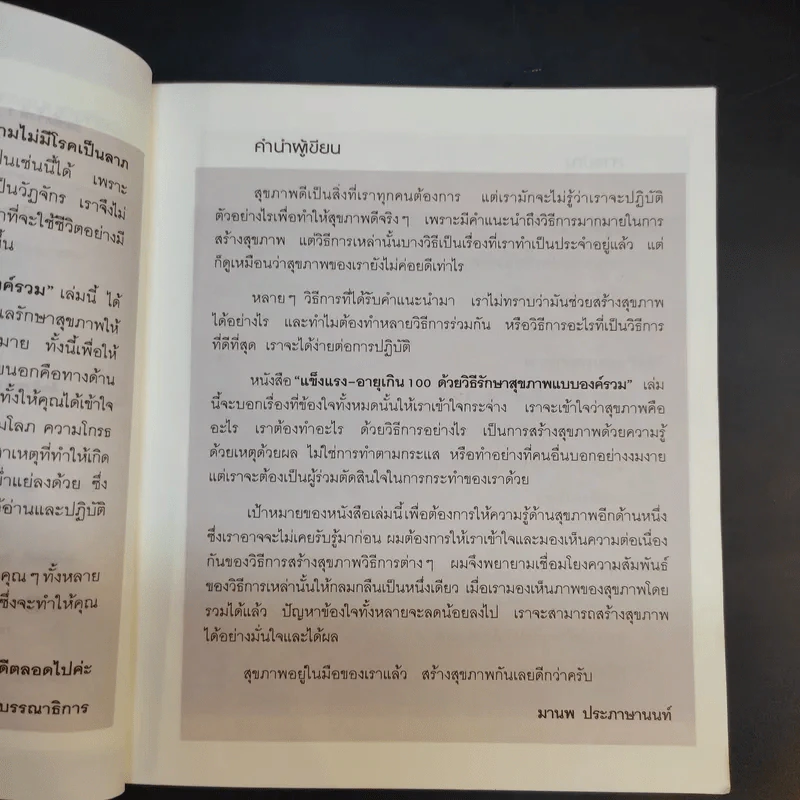 ามไม่มีโรคเป็นลาภ
ป็นเช่นนี้ได้ เพราะ
ป็นวัฏจักร เราจึงไม่
าที่จะใช้ชีวิตอย่างมี
ึ้น
งค์รวม” เล่มนี้ ได้
แลรักษาสุขภาพให้
มาย ทั้งนี้เพื่อให้
ยนอกคือทางด้าน
ทั้งให้คุณได้เข้าใจ
มโลภ ความโกรธ
าเหตุที่ทำให้เกิด
ย่ำแย่ลงด้วย ซึ่ง
้อ่านและปฏิบัติ
คุณ ๆ ทั้งหลาย
ซึ่งจะทำให้คุณ
ดีตลอดไปค่ะ
บรรณาธิการ
คำนำผู้เขียน
สุขภาพดีเป็นสิ่งที่เราทุกคนต้องการ แต่เรามักจะไม่รู้ว่าเราจะปฏิบัติ
ตัวอย่างไรเพื่อทำให้สุขภาพดีจริง ๆ เพราะมีคำแนะนำถึงวิธีการมากมายในการ
สร้างสุขภาพ แต่วิธีการเหล่านั้นบางวิธีเป็นเรื่องที่เราทำเป็นประจำอยู่แล้ว แต่
ก็ดูเหมือนว่าสุขภาพของเรายังไม่ค่อยดีเท่าไร
หลาย ๆ วิธีการที่ได้รับคำแนะนำมา เราไม่ทราบว่ามันช่วยสร้างสุขภาพ
ได้อย่างไร และทำไมต้องทำหลายวิธีการร่วมกัน หรือวิธีการอะไรที่เป็นวิธีการ
ที่ดีที่สุด เราจะได้ง่ายต่อการปฏิบัติ
หนังสือ “แข็งแรง-อายุเกิน 100 ด้วยวิธีรักษาสุขภาพแบบองค์รวม” เล่ม
นี้จะบอกเรื่องที่ข้องใจทั้งหมดนั้นให้เราเข้าใจกระจ่าง เราจะเข้าใจว่าสุขภาพคือ
อะไร เราต้องทำอะไร ด้วยวิธีการอย่างไร เป็นการสร้างสุขภาพด้วยความรู้
ด้วยเหตุด้วยผล ไม่ใช่การทำตามกระแส หรือทำอย่างที่คนอื่นบอกอย่างงมงาย
แต่เราจะต้องเป็นผู้ร่วมตัดสินใจในการกระทำของเราด้วย
เป้าหมายของหนังสือเล่มนี้เพื่อต้องการให้ความรู้ด้านสุขภาพอีกด้านหนึ่ง
ซึ่งเราอาจจะไม่เคยรับรู้มาก่อน ผมต้องการให้เราเข้าใจและมองเห็นความต่อเนื่อง
กันของวิธีการสร้างสุขภาพวิธีการต่าง ๆ ผมจึงพยายามเชื่อมโยงความสัมพันธ์
ของวิธีการเหล่านั้นให้กลมกลืนเป็นหนึ่งเดียว เมื่อเรามองเห็นภาพของสุขภาพโดย
รวมได้แล้ว ปัญหาข้องใจทั้งหลายจะลดน้อยลงไป เราจะสามารถสร้างสุขภาพ
ได้อย่างมั่นใจและได้ผล
สุขภาพอยู่ในมือของเราแล้ว สร้างสุขภาพกันเลยดีกว่าครับ
มานพ ประภาษานนท์